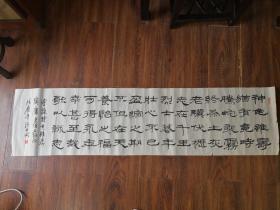 神龜雖壽
猶有竟時
騰蛇乘霧
終為土灰
老驥伏櫪
志在千里
烈士暮年
壯心不已
盈縮之期
不但在天
可得永年
幸甚至哉
歌以詠志